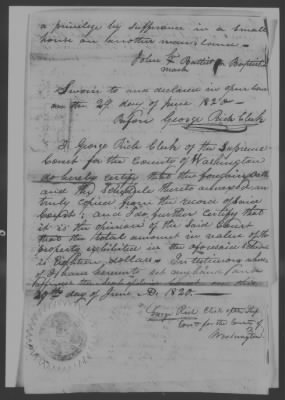 a privilege by sufferance in a small
house on another man's land –
John F Battist Baptiste
mark
Sworn to and declared in open court
on the 29 day of June 1820 –
Before George Rich Clerk
I George Rich Clerk of the Supreme
Court for the County of Washington
do hereby certify that the foregoing oath
and the Schedule thereto annexed are
truly copied from the record of said
Court; and I do further certify that
it is the opinion of the said Court
that the total amount in value of the
property exhibited in the aforesaid Schedule
is Eighteen dollars. In testimony where
of I have hereunto set my hand and
affixed the seal of said Court on this
29th day of June A.D. 1820.
Geoge Rich Clerk of the Sup.
Court for the County of
Washington